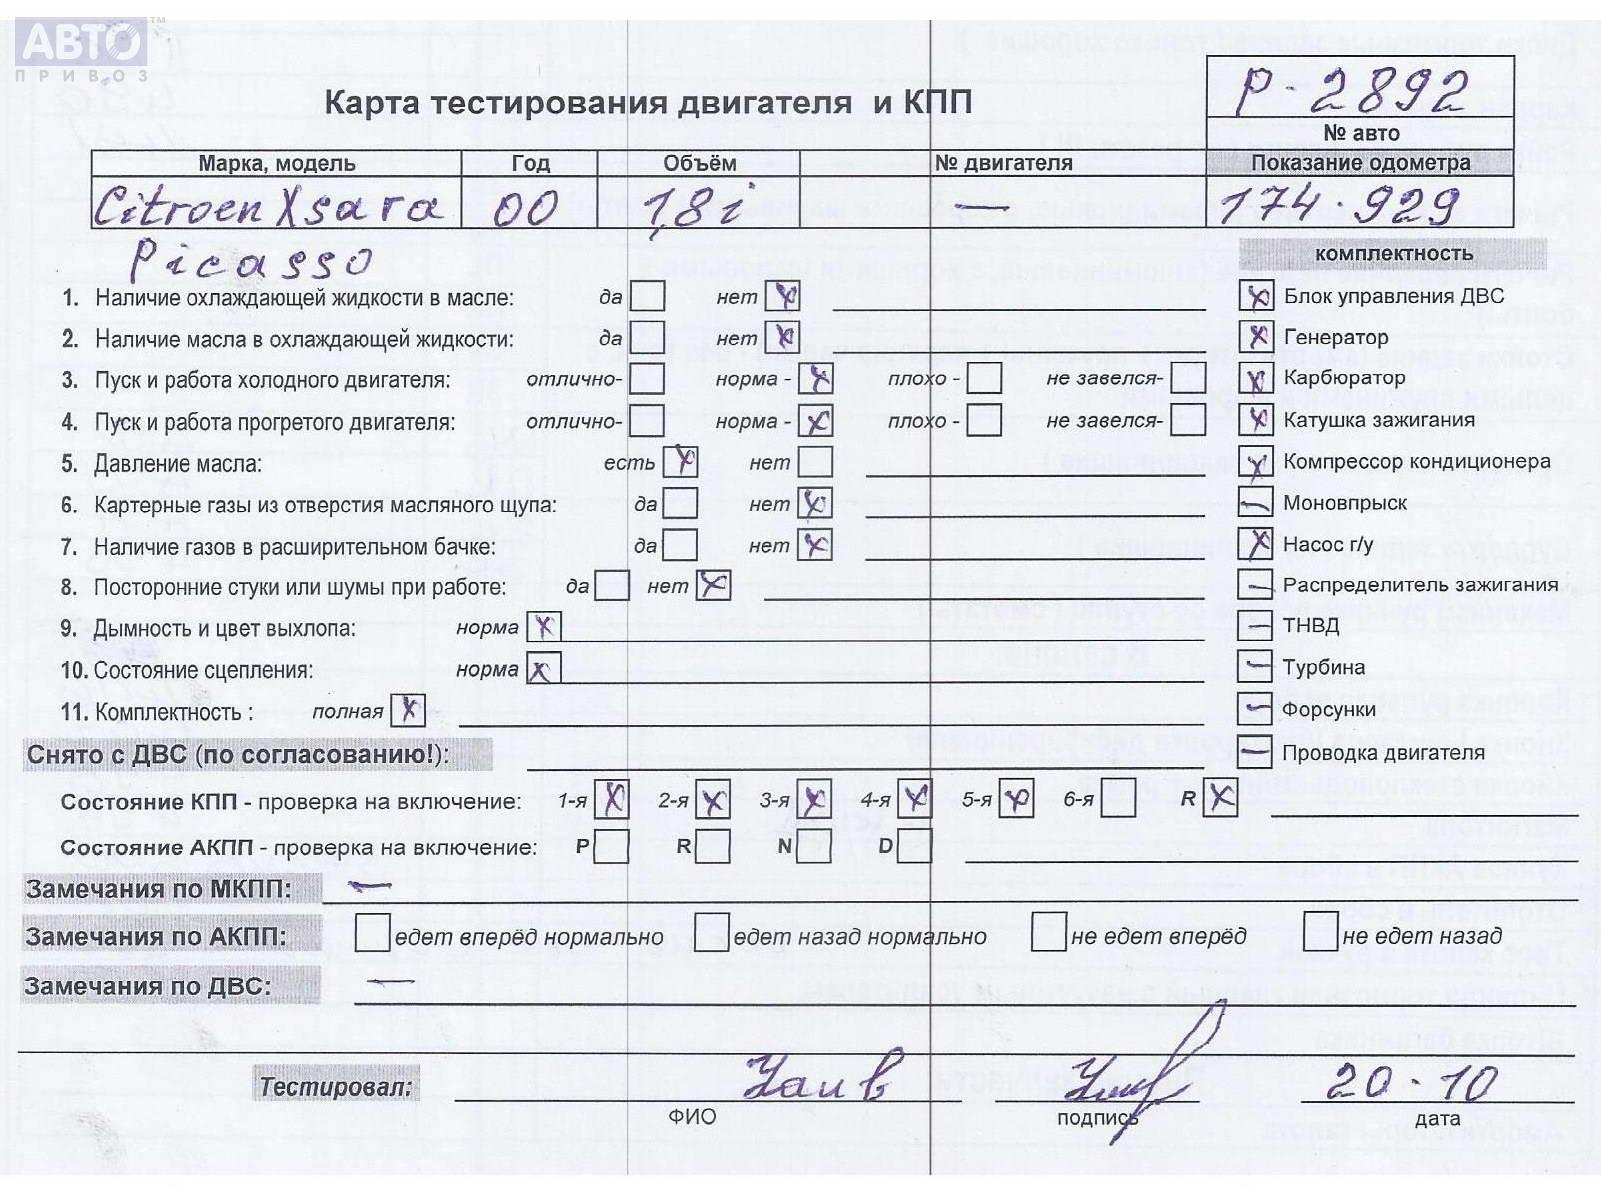 АВТО™
ПРИВОЗ
Р-2892
Карта тестирования двигателя и КПП
№ авто
Марка, модель Год Объём № двигателя Показание одометра
Citroen Xsara 00 1,8i — 174.929
Picasso
комплектность
1. Наличие охлаждающей жидкости в масле: да нет X X Блок управления ДВС
2. Наличие масла в охлаждающей жидкости: да нет X X Генератор
3. Пуск и работа холодного двигателя: отлично- норма - X плохо - не завелся- X Карбюратор
4. Пуск и работа прогретого двигателя: отлично- норма - X плохо - не завелся- X Катушка зажигания
5. Давление масла: есть X нет X Компрессор кондиционера
6. Картерные газы из отверстия масляного щупа: да нет X — Моновпрыск
7. Наличие газов в расширительном бачке: да нет X X Насос г/у
8. Посторонние стуки или шумы при работе: да нет X — Распределитель зажигания
9. Дымность и цвет выхлопа: норма X — ТНВД
10. Состояние сцепления: норма X — Турбина
11. Комплектность : полная X — Форсунки
Снято с ДВС (по согласованию!): — Проводка двигателя
Состояние КПП - проверка на включение: 1-я X 2-я X 3-я X 4-я X 5-я X 6-я R X
Состояние АКПП - проверка на включение: P R N D
Замечания по МКПП: —
Замечания по АКПП: едет вперёд нормально едет назад нормально не едет вперёд не едет назад
Замечания по ДВС: —
Тестировал: 20.10
ФИО подпись дата